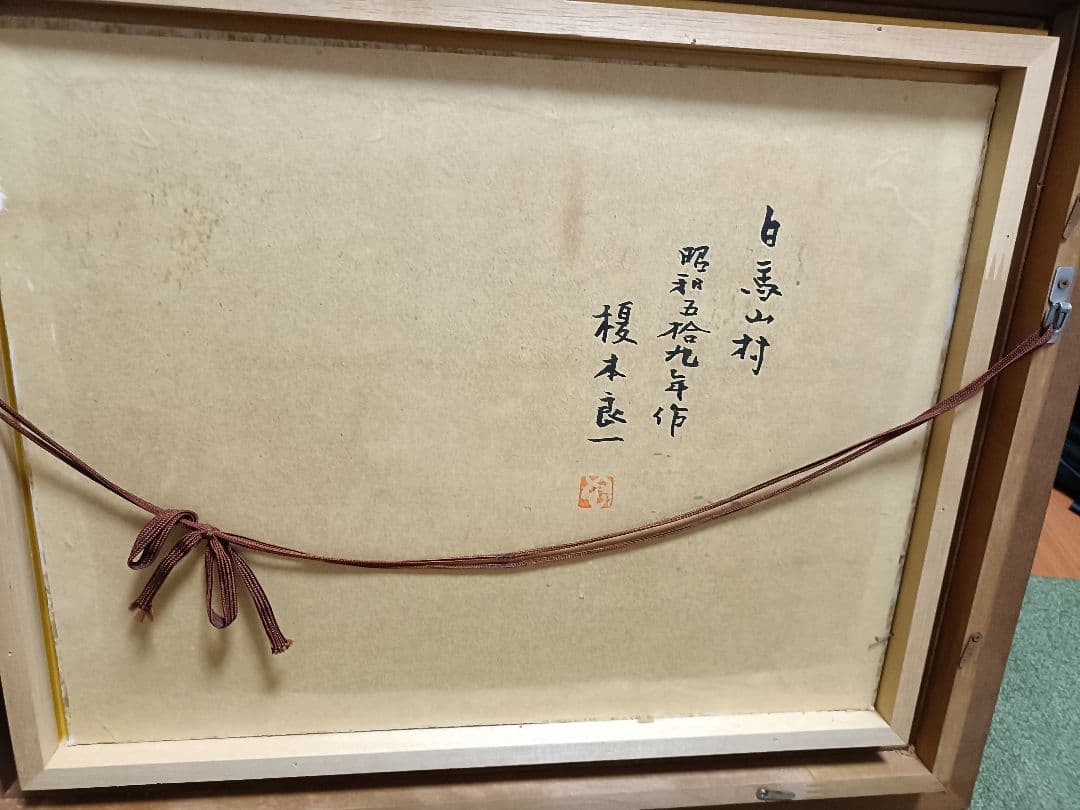 白馬山村
昭和五拾九年作
榎本良一